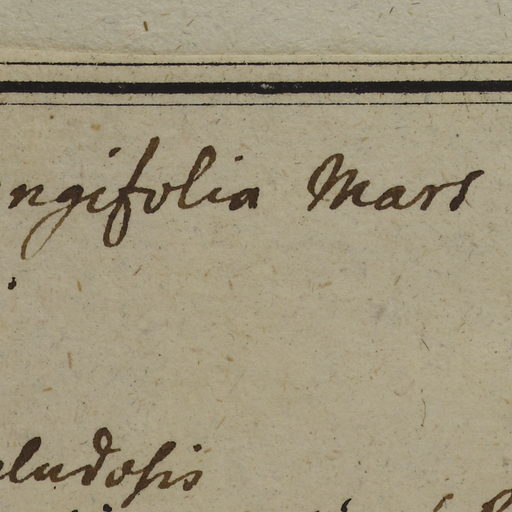 ngifolia Mars
ludosis